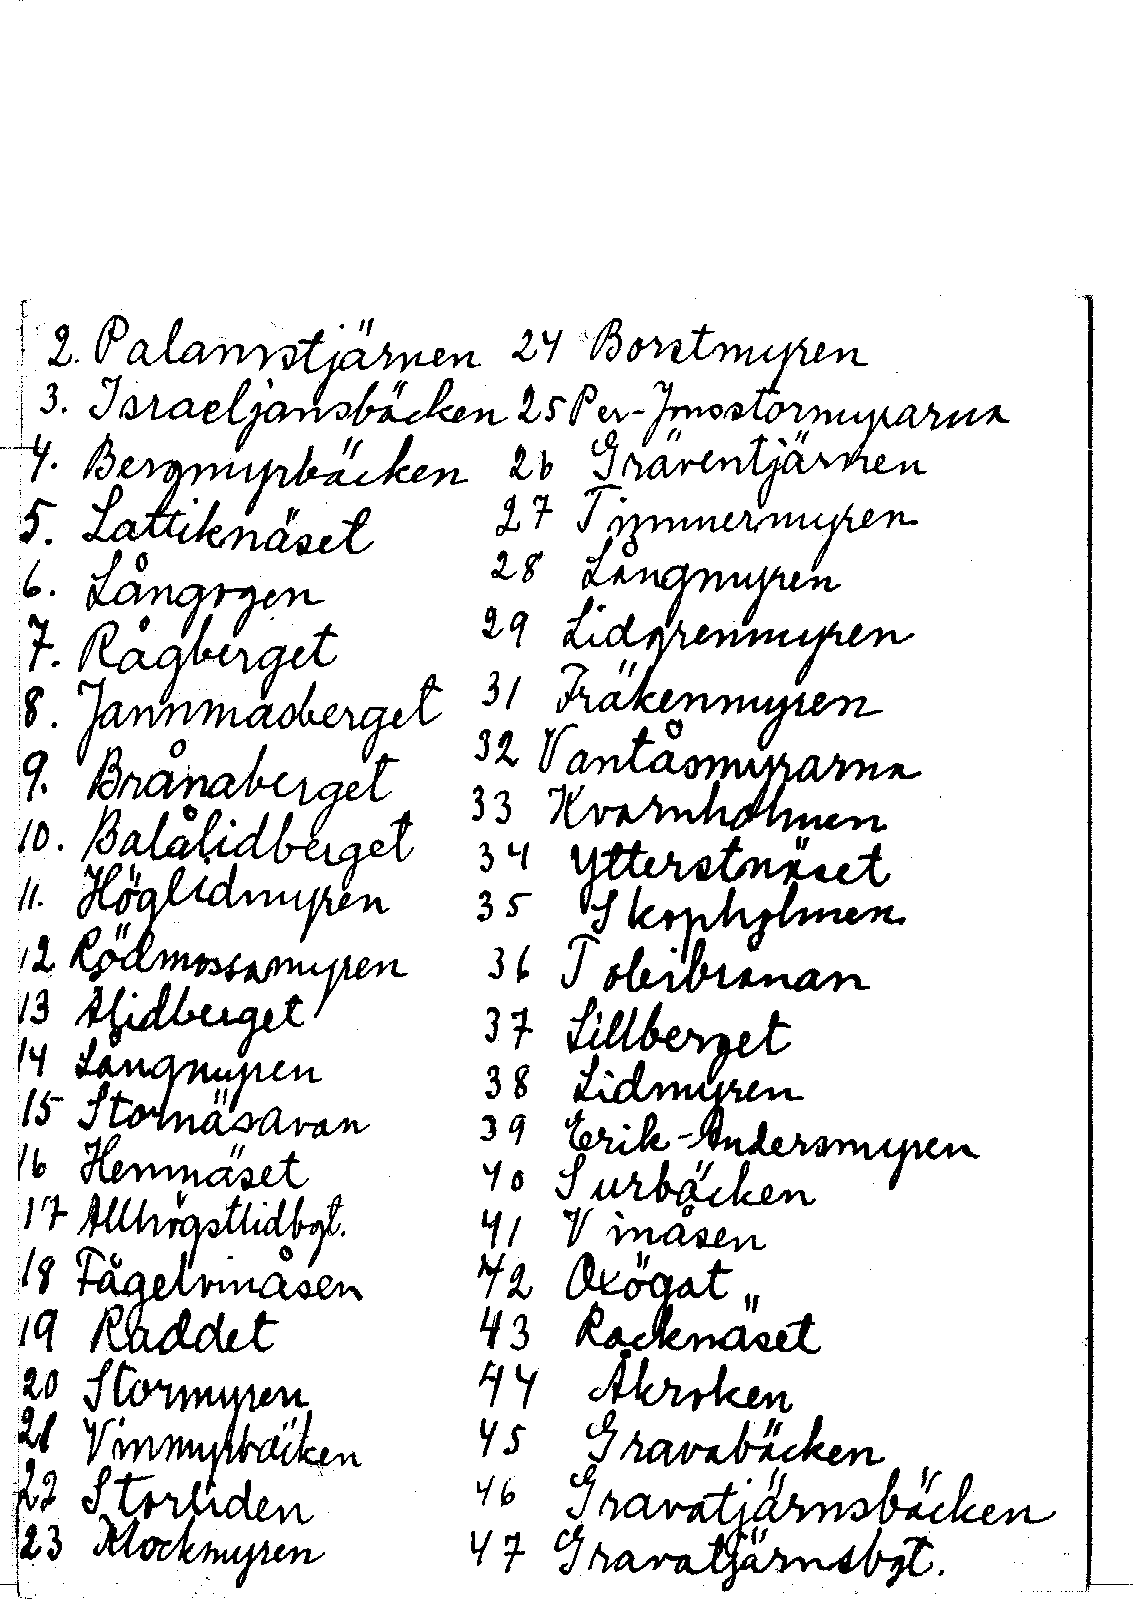 2. Palamstjärnen
3. Israeljansbäcken
4. Bergmyrbäcken
5. Lattiknäset
6. Långrgen
7. Rågberget
8. Jannmasberget
9. Brånaberget
10. Balålidberget
11. Höglidmyren
12 Rödmossamyren
13 Alidberget
14 Långmyren
15 Stornäsavan
16 Hemnäset
17 Allhögstlidbgt.
18 Fågelvinåsen
19 Raddet
20 Stormyren
21 Vinmyrbäcken
22 Storliden
23 Klockmyren
24 Borstmyren
25 Per-Jonsstormyrarna
26 Gräventjärnen
27 Timmermyren
28 Långmyren
29 Lidgrenmyren
31 Fräkenmyren
32 Vantåsmyrarna
33 Kvarnholmen
34 Ytterstnäset
35 Skopholmen
36 Tobibrånan
37 Lillberget
38 Lidmyren
39 Erik-Andersmyren
40 Surbäcken
41 Vinåsen
42 Oxögat
43 Racknäset
44 Åkroken
45 Gravabäcken
46 Gravatjärnsbäcken
47 Gravatjärnsbgt.